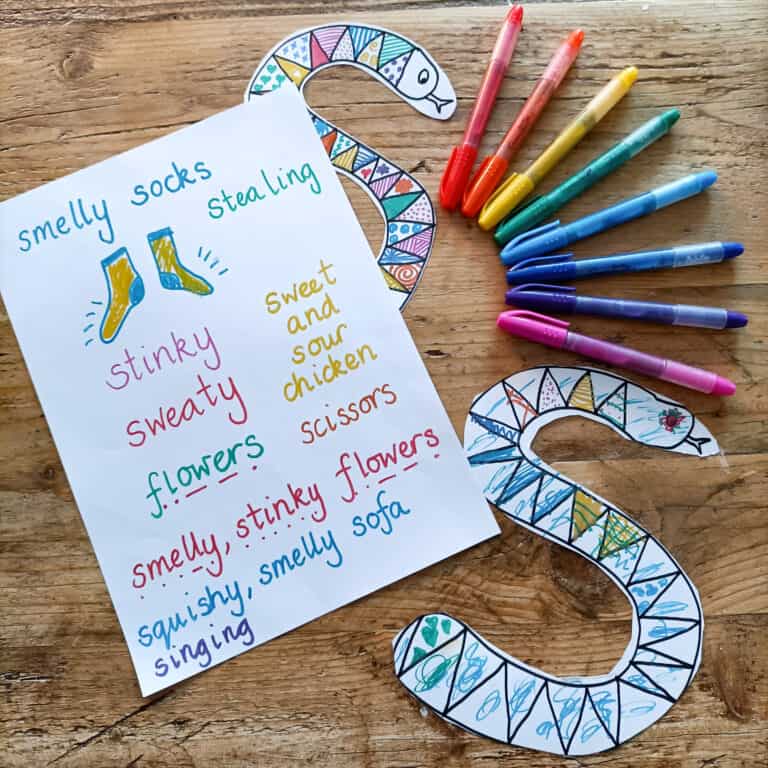 smelly socks
stealing
stinky
sweaty
sweet
and
sour
chicken
scissors
flowers
smelly, stinky flowers
squishy, smelly sofa
singing